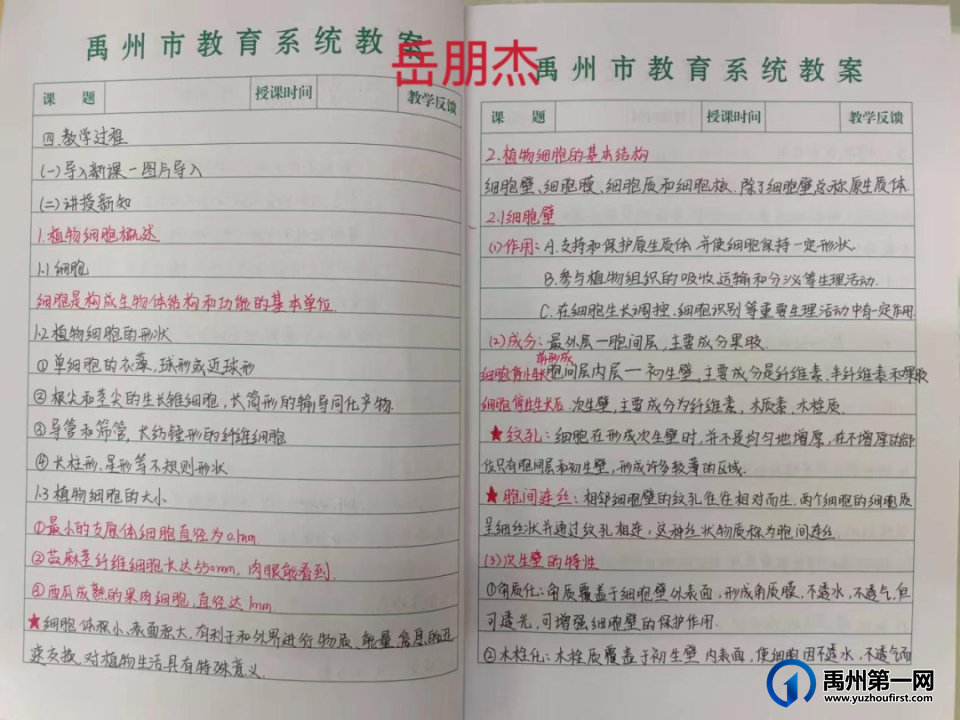 禹州市教育系统教案
课 题
授课时间
教学反馈
四.教学过程
(一)导入新课-图片导入
(二)讲授新知
1.植物细胞概述
1.1 细胞
细胞是构成生物体结构和功能的基本单位.
1.2 植物细胞的形状
①单细胞的衣藻,球形或近球形
②根尖和茎尖的生长锥细胞,长筒形的输导同化产物.
③导管和筛管,长纺锤形的纤维细胞
④长柱形、星形等不规则形状
1.3 植物细胞的大小
①最小的支原体细胞直径为0.1mm
②苎麻茎纤维细胞长达550mm,肉眼能看到.
③西瓜成熟的果肉细胞,直径达1mm.
★细胞体积小,表面积大,有利于和外界进行物质、能量、信息的迅
速交换,对植物生活具有特殊意义.
岳朋杰
禹州市教育系统教案
课 题
授课时间
教学反馈
2.植物细胞的基本结构
细胞壁、细胞膜、细胞质和细胞核.除了细胞壁总称原生质体.
2.1细胞壁
(1)作用:A.支持和保护原生质体,并使细胞保持一定形状.
B.参与植物组织的吸收、运输和分泌等生理活动.
C.在细胞生长调控、细胞识别等重要生理活动中有一定作用.
(2)成分:最外层—胞间层,主要成分果胶.
胞间层内层—初生壁,主要成分是纤维素、半纤维素和果胶
细胞停止生长后.次生壁,主要成分为纤维素、木质素、木栓质.
★纹孔:细胞在形成次生壁时,并不是均匀地增厚,在不增厚的部
位只有胞间层和初生壁,形成许多较薄的区域.
★胞间连丝:相邻细胞壁的纹孔往往相对而生,两个细胞的细胞质
呈细丝状并通过纹孔相连,这种丝状物质称为胞间连丝.
(3)次生壁的特性
①角质化:角质覆盖于细胞壁外表面,形成角质膜,不透水,不透气,但
可透光,可增强细胞壁的保护作用.
②木栓化:木栓质覆盖于初生壁内表面,使细胞因不透水,不透气而
禹州第一网
www.yuzhoufirst.com